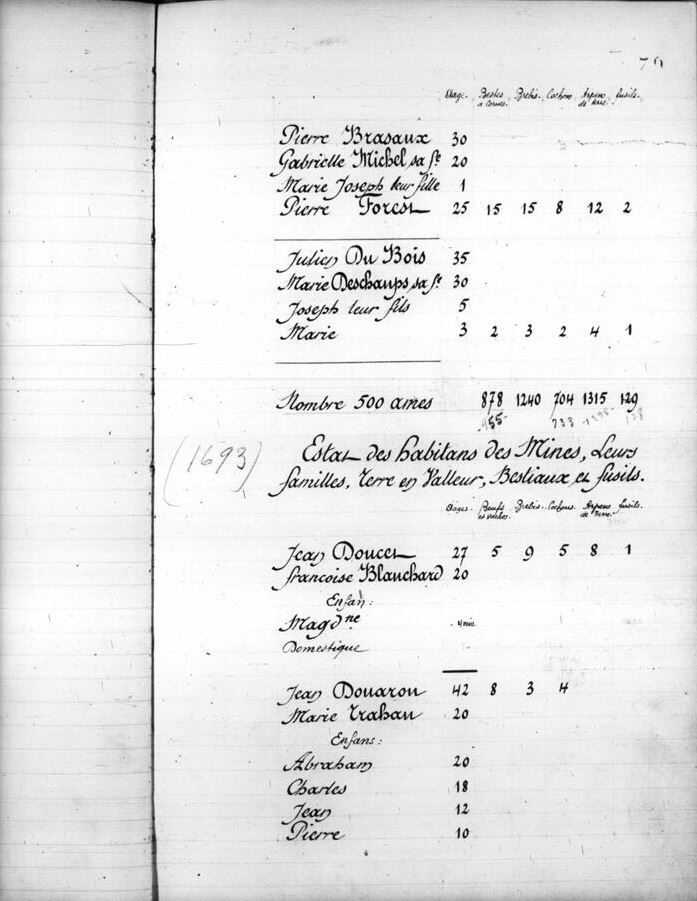 79
Aage. Bestes a cornes. Brebis. Cochons Arpens de terre. fusils.
Pierre Brasaux 30
Gabrielle Michel sa fe 20
Marie Joseph leur fille 1
Pierre Forest 25 15 15 8 12 2
Julien Du Bois 35
Marie Deschamps sa fe 30
Joseph leur fils 5
Marie 3 2 3 2 4 1
Nombre 500 ames 878 1240 704 1315 129
(1693)
Estat des habitans des Mines, Leurs
familles, Terre en Valleur, Bestiaux et fusils.
Aages. Boeufs et vaches. Brebis. Cochons. Arpens de Terre. fusils.
Jean Doucet 27 5 9 5 8 1
francoise Blanchard 20
Enfan:
Magdne 4 mois
Domestique
Jean Douaron 42 8 3 4
Marie Trahan 20
Enfans:
Abraham 20
Charles 18
Jean 12
Pierre 10